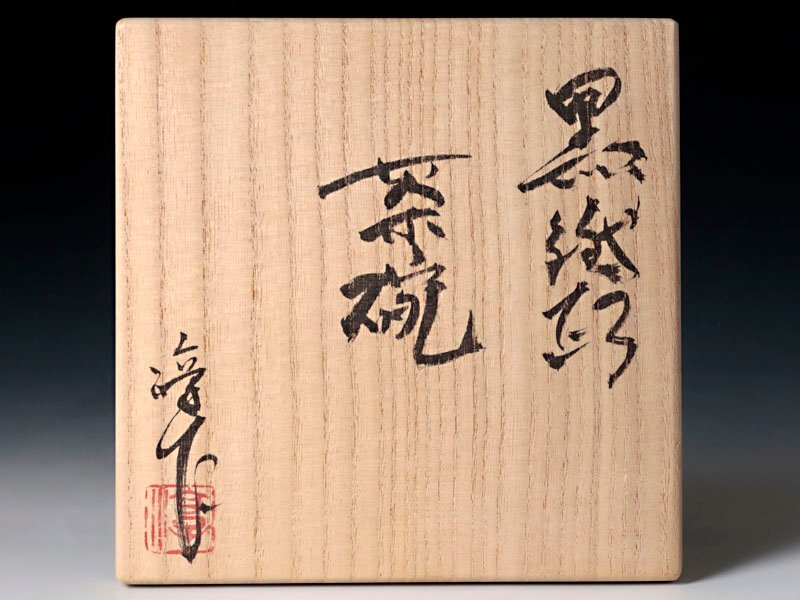 黒織部
茶碗
淳作